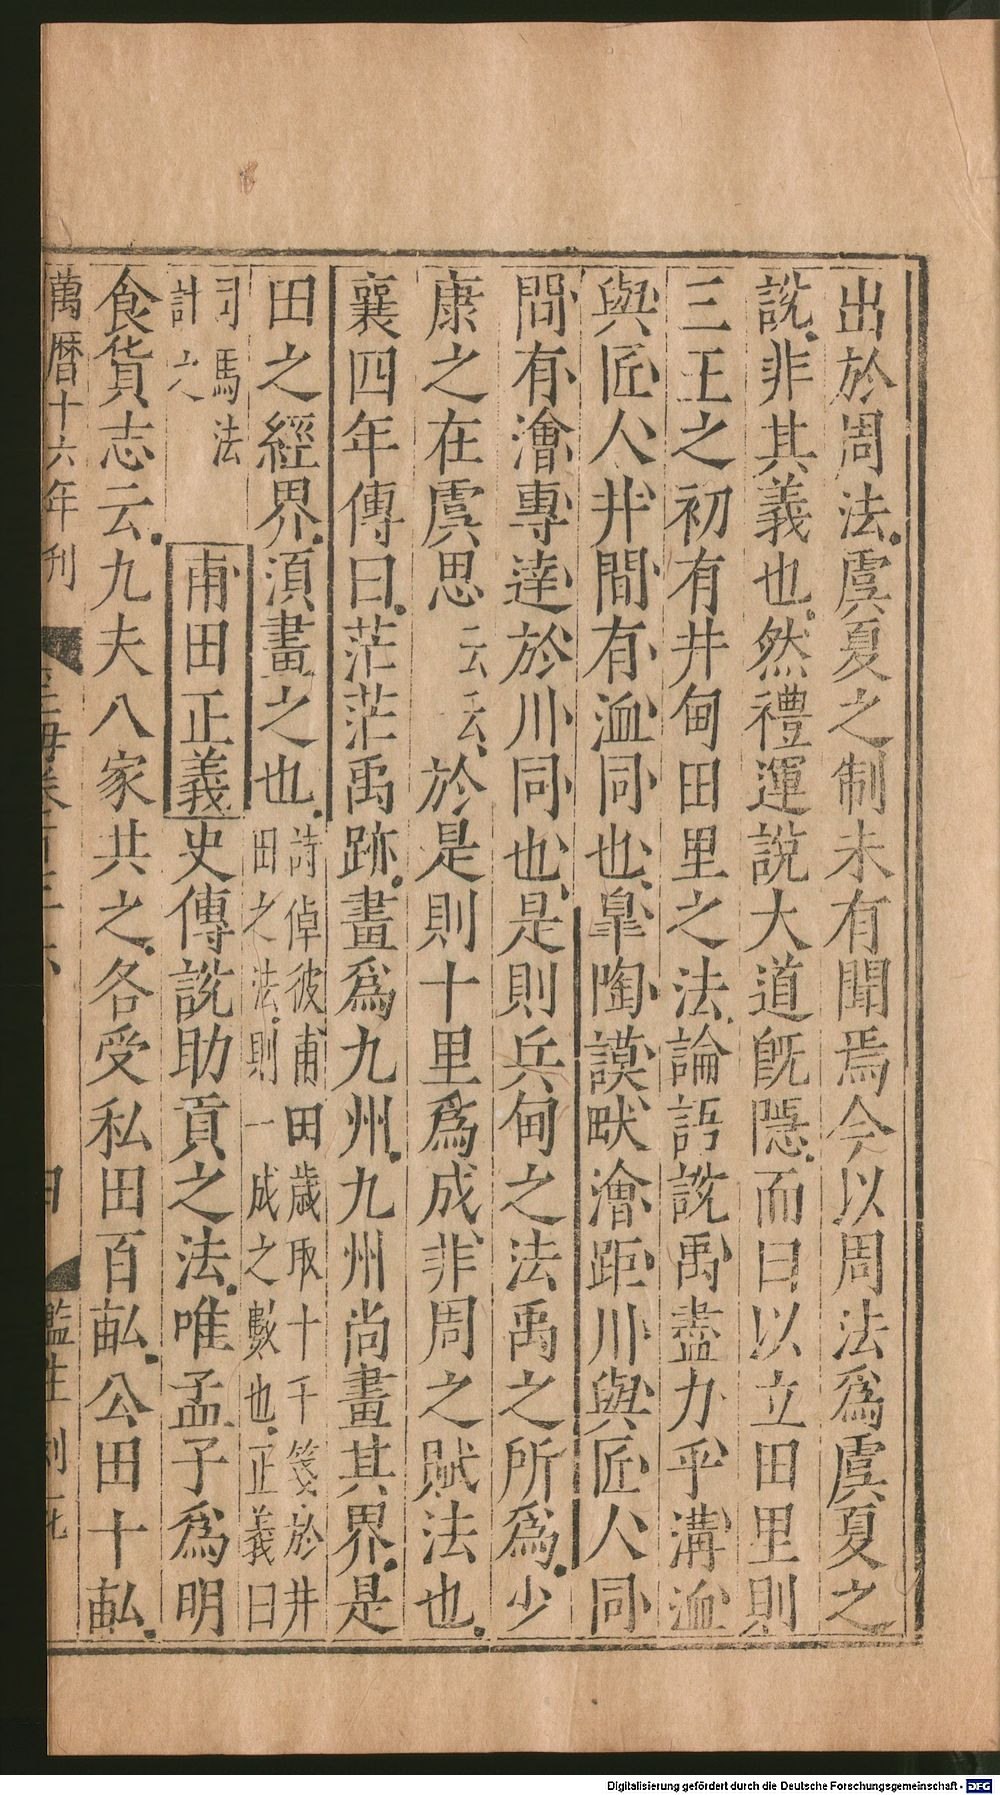 出於周法虞夏之制未有聞焉今以周法爲虞夏之
說非其義也然禮運說大道旣隱而曰以立田里則
三王之初有井甸田里之法論語說禹盡力乎溝洫
與匠人井間有洫同也臯陶謨畎澮距川與匠人同
間有澮專達於川同也是則兵甸之法禹之所爲少
康之在虞思云云於是則十里爲成非周之賦法也
襄四年傳曰茫茫禹跡畫爲九州九州尚畫其界是
田之經界須畫之也詩倬彼甫田歲取十千箋於井
田之法則一成之數也正義曰
司馬法
計之甫田正義史傳說助貢之法唯孟子爲明
食貨志云九夫八家共之各受私田百畝公田十畝
萬曆十六年刊 監生刘
Digitalisierung gefördert durch die Deutsche Forschungsgemeinschaft - DFG